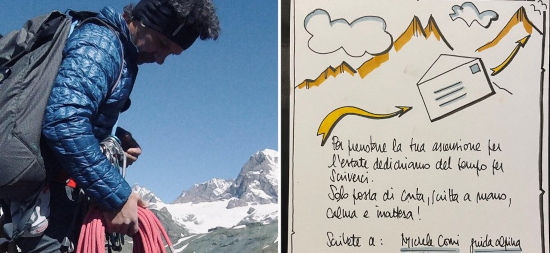 Per prenotare la tua ascensione per
l'estate dedichiamo del tempo per
scriverci.
Solo posta di carta, scritta a mano,
calma e matera!
Scrivete a: Michele Comi guida alpina